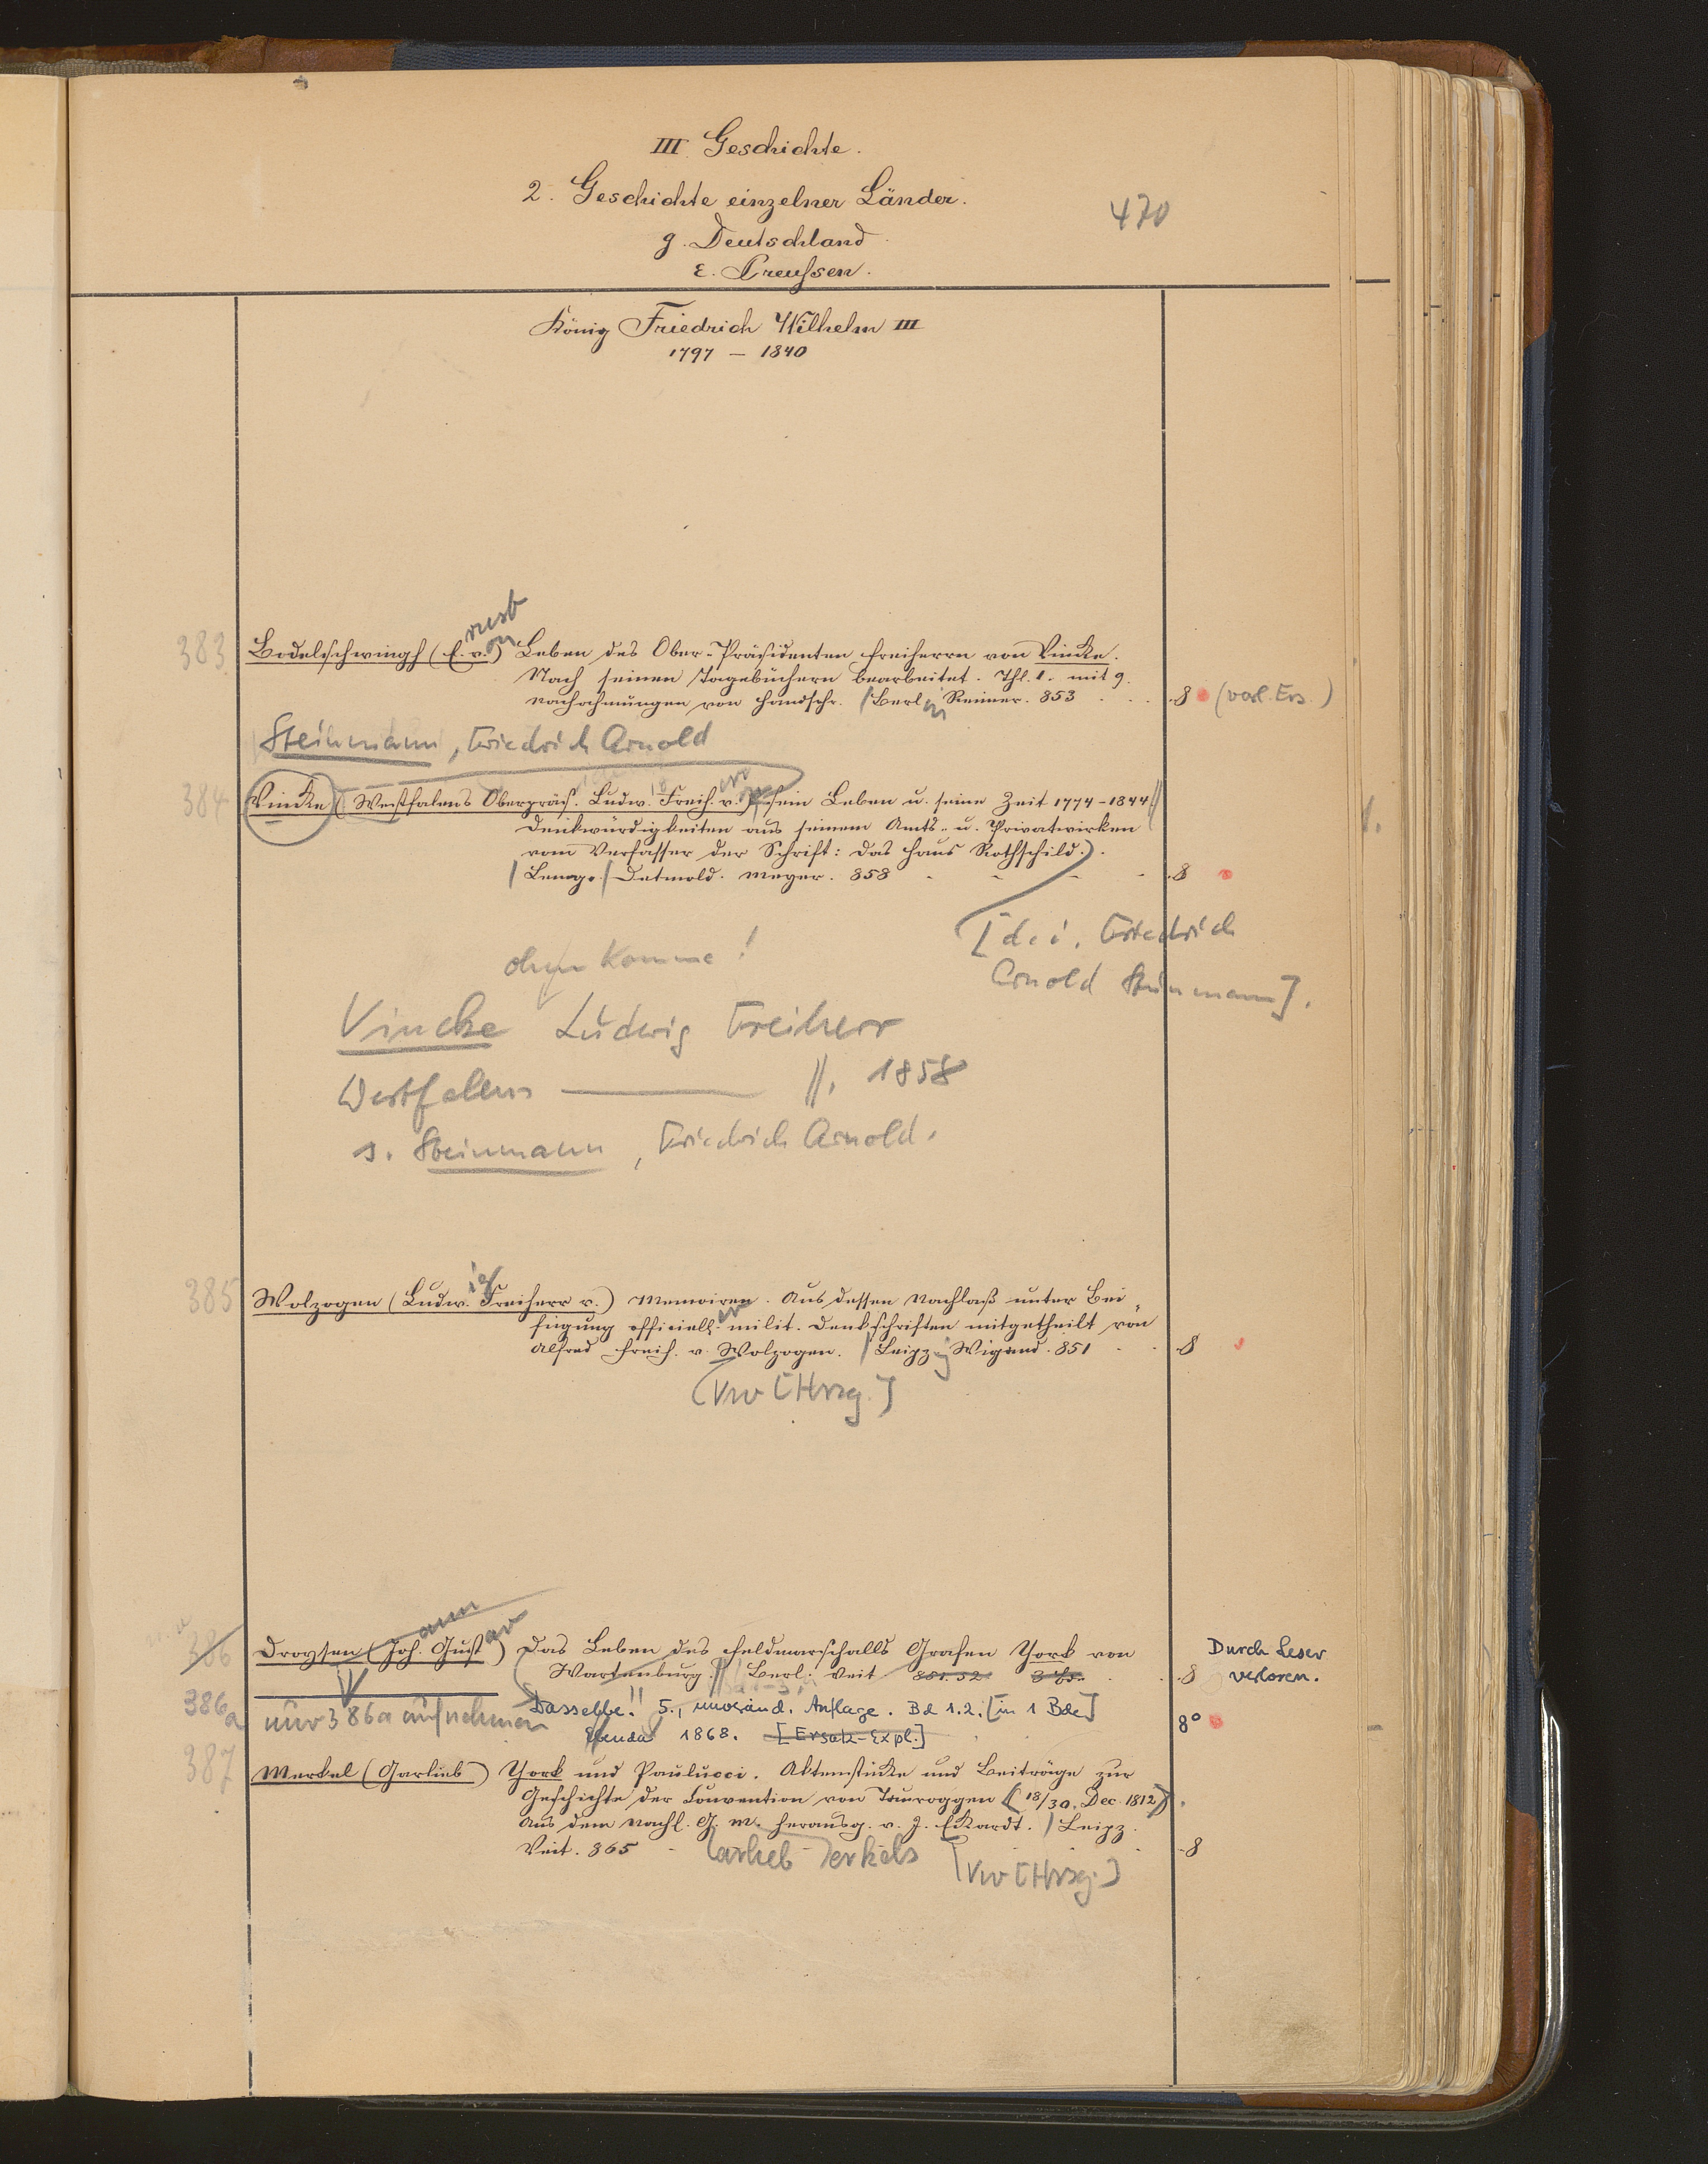 III. Geschichte.
2. Geschichte einzelner Länder.
470
g. Deutschland.
ε. Preußen.
König Friedrich Wilhelm III
1797 – 1840
rnst
on
383 Bodelschwingh (E. v.) Leben des Ober-Präsidenten Freiherrn von Vincke.
Nach seinen Tagebüchern bearbeitet. Thl. 1. mit 9
Nachahmungen von Handschr. / Berl in Reimer. 853 . . . 8 (vorl. Ers.)
Steinmann, Friedrich Arnold
384 Vincke (Westfalens Oberpräs. Ludw. Freih. v.) sein Leben u. seine Zeit 1774–1844 //
Denkwürdigkeiten aus seinem Amts- u. Privatwirken
vom Verfasser der Schrift: Das Haus Rothschild.).
/ Lemgo. / Detmold. Meyer. 858 - - - - 8
1.
[d. i. Friedrich
Arnold Steinmann].
ohne Komma!
Vincke Ludwig Freiherr
Westfalens ——— //. 1858
s. Steinmann, Friedrich Arnold.
ig
385 Wolzogen (Ludw. Freiherr v.) Memoiren. Aus dessen Nachlaß unter Bei„
fügung officiell. er milit. Denkschriften mitgetheilt von
Alfred Freih. v. Wolzogen. / Leipz ig Wigand. 851 . . 8
(Vw [Hrsg.]
ann av
386 Droysen (Joh. Gust.) Das Leben des Feldmarschalls Grafen York von
Durch Leser
Wartenburg. // Berl. Veit 851. 52. 3 Thle. . . 8
verloren.
386a nur 386a aufnehmen
Dasselbe. 5., unveränd. Auflage. Bd 1.2. [in 1 Bde]
8°
Ebenda 1868. [Ersatz-Expl.]
387 Merkel (Garlieb) York und Paulucci. Aktenstücke und Beiträge zur
Geschichte der Convention von Tauroggen (18/30. Dec. 1812).
Aus dem Nachl. G. M. herausg. v. J. Eckardt. / Leipz.
Veit. 865 - - 8
Garlieb Merkels [Vw [Hrsg.]